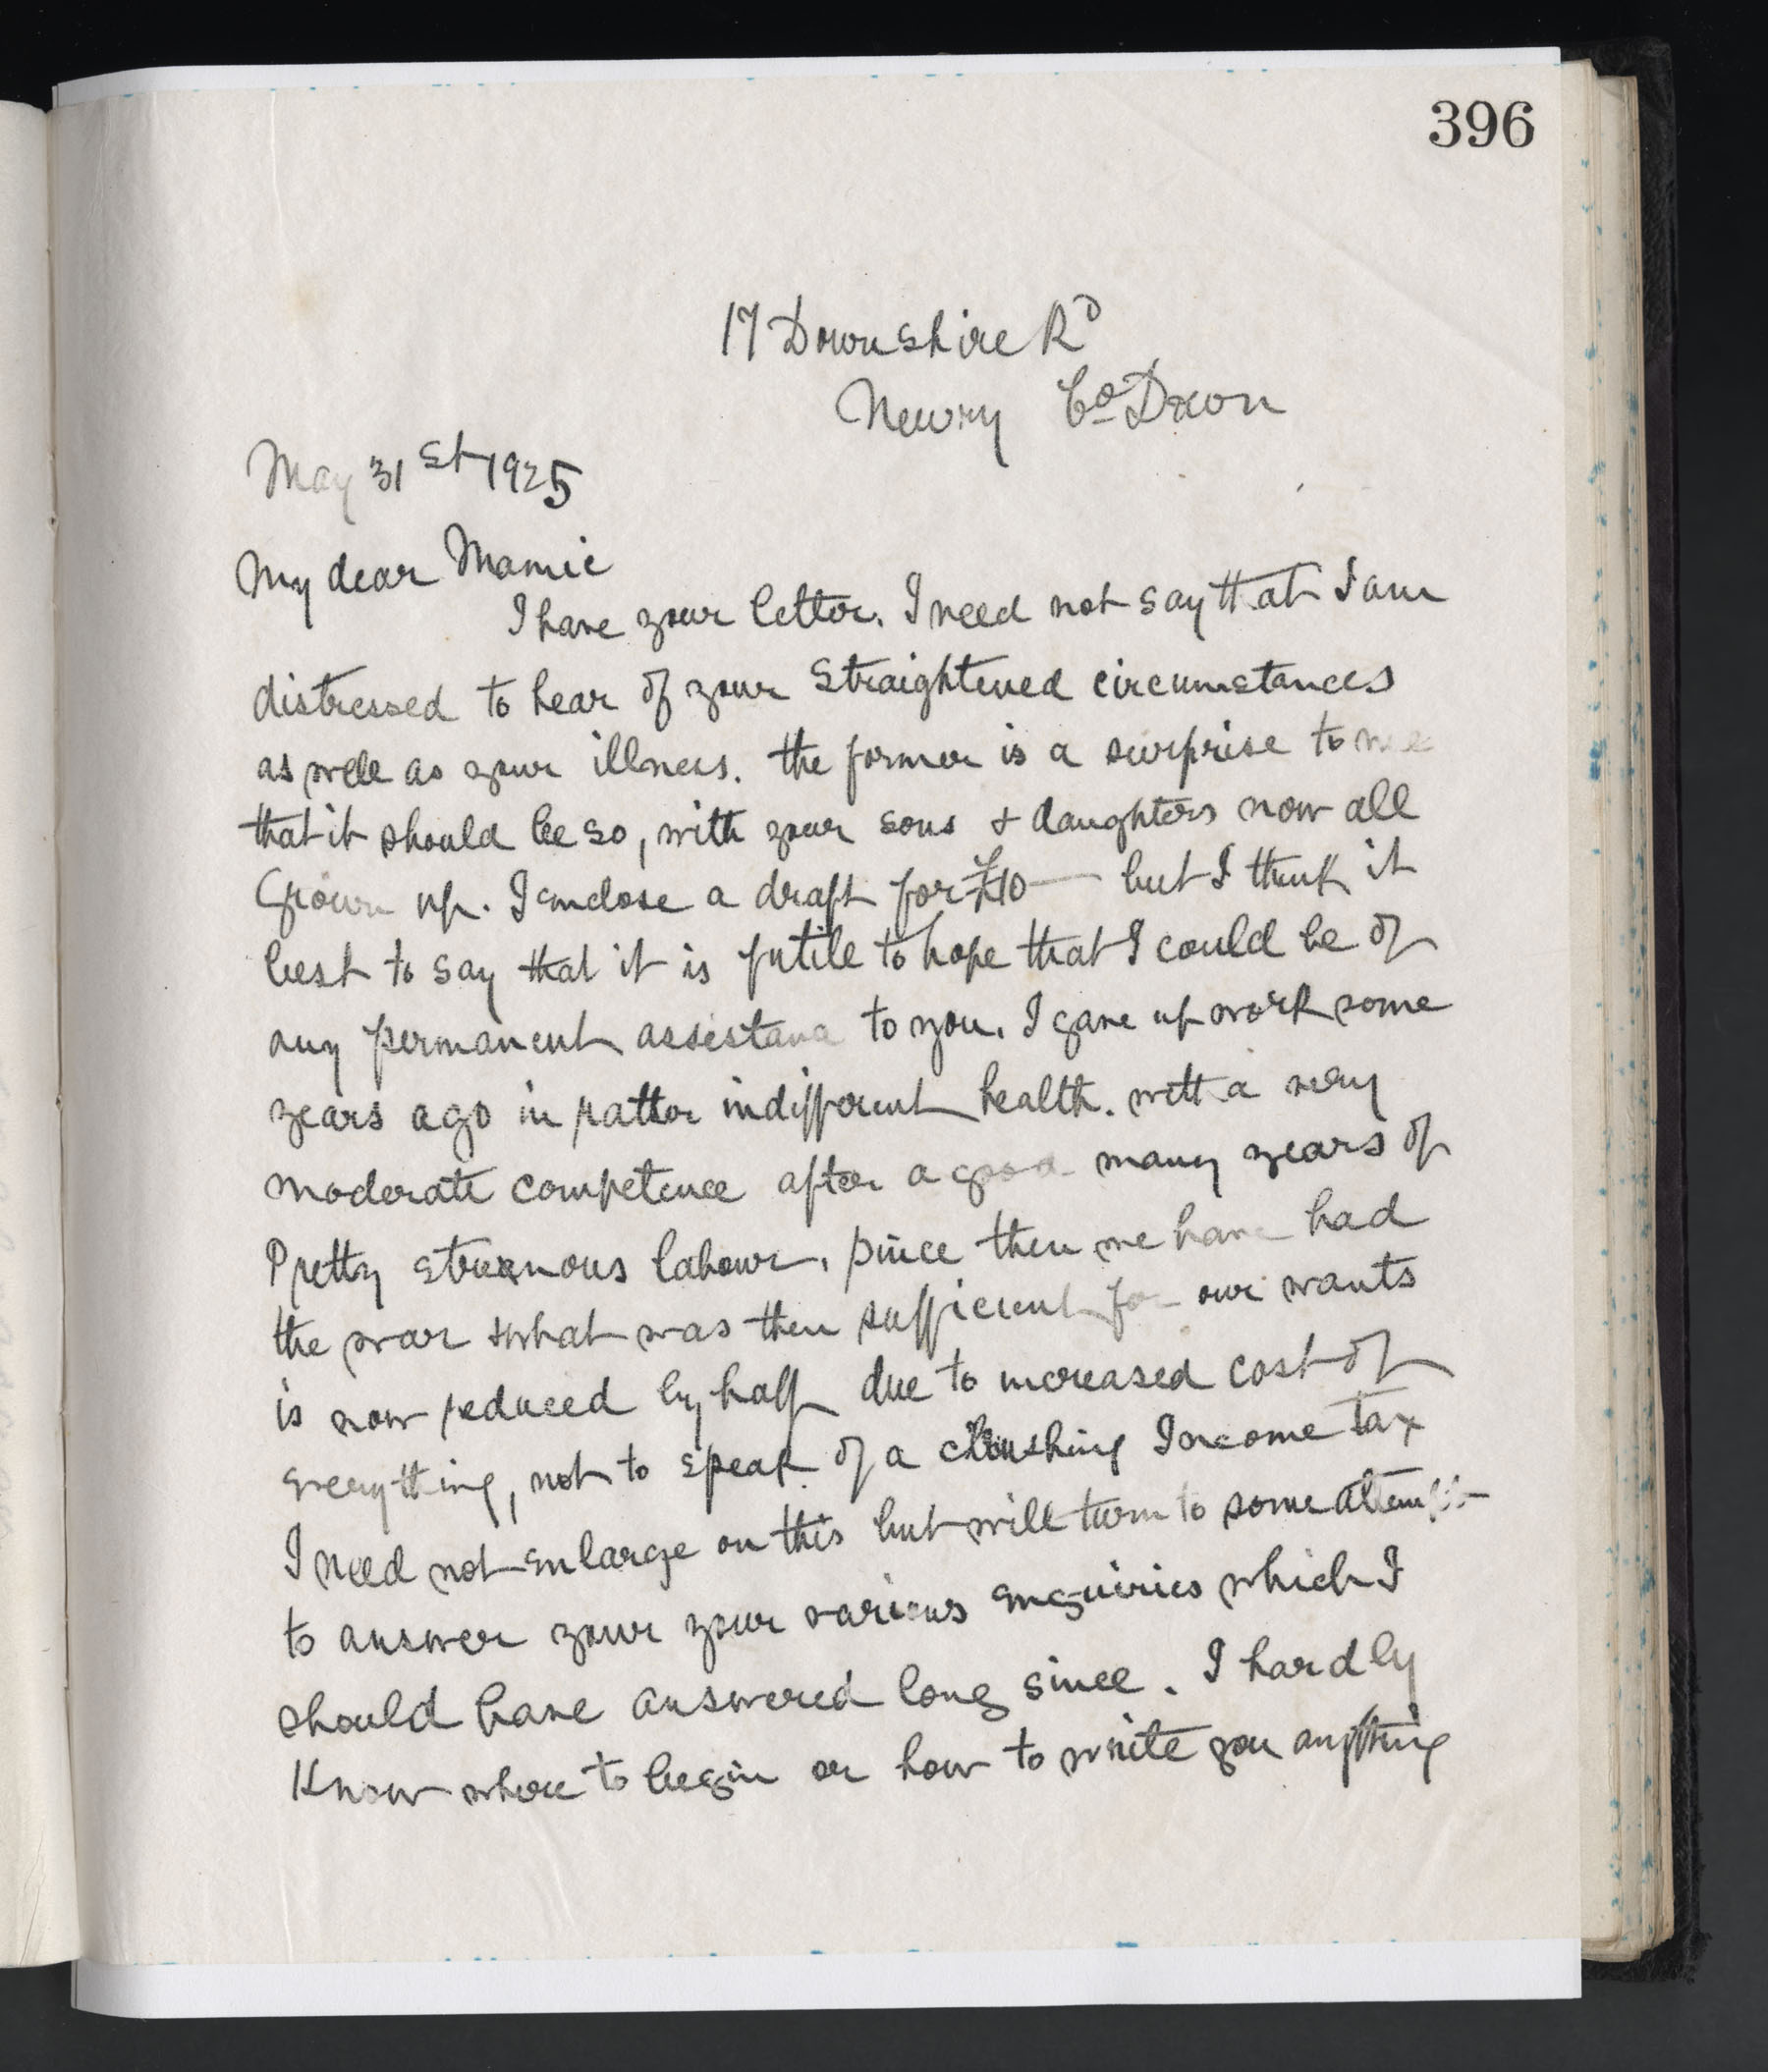 396
17 Downshire Rd
Newry Co Down
May 31st 1925
My dear Mamie
I have your letter. I need not say that I am
distressed to hear of your straightened circumstances
as well as your illness. the former is a surprise to me
that it should be so, with your sons & daughters now all
Grown up. I enclose a draft for £10 — but I think it
best to say that it is futile to hope that I could be of
any permanent assistance to you. I gave up work some
years ago in rather indifferent health. with a very
moderate competence after a good many years of
Pretty strenuous labour. since then we have had
the war & what was then sufficient for our wants
is now reduced by half due to increased cost of
everything, not to speak of a crushing Income tax
I need not enlarge on this but will turn to some attempt
to answer your your various enquiries which I
should have answered long since. I hardly
Know where to begin or how to write you anything